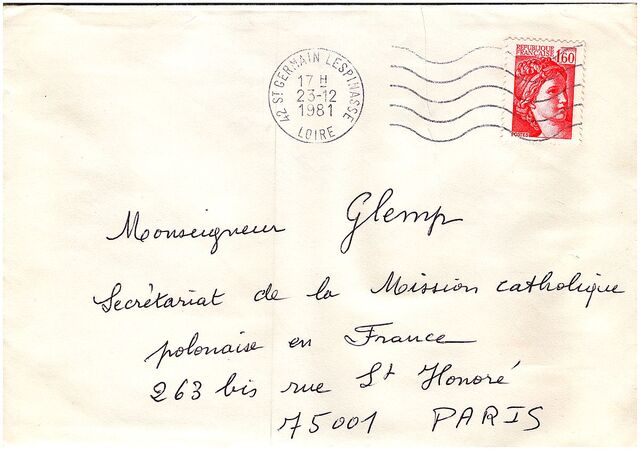 42 ST GERMAIN LESPINASSE
17 H
23-12
1981
LOIRE
REPUBLIQUE
FRANÇAISE
1,60
POSTES
Monseigneur Glemp
Secrétariat de la Mission catholique
polonaise en France
263 bis rue St Honoré
75001 PARIS